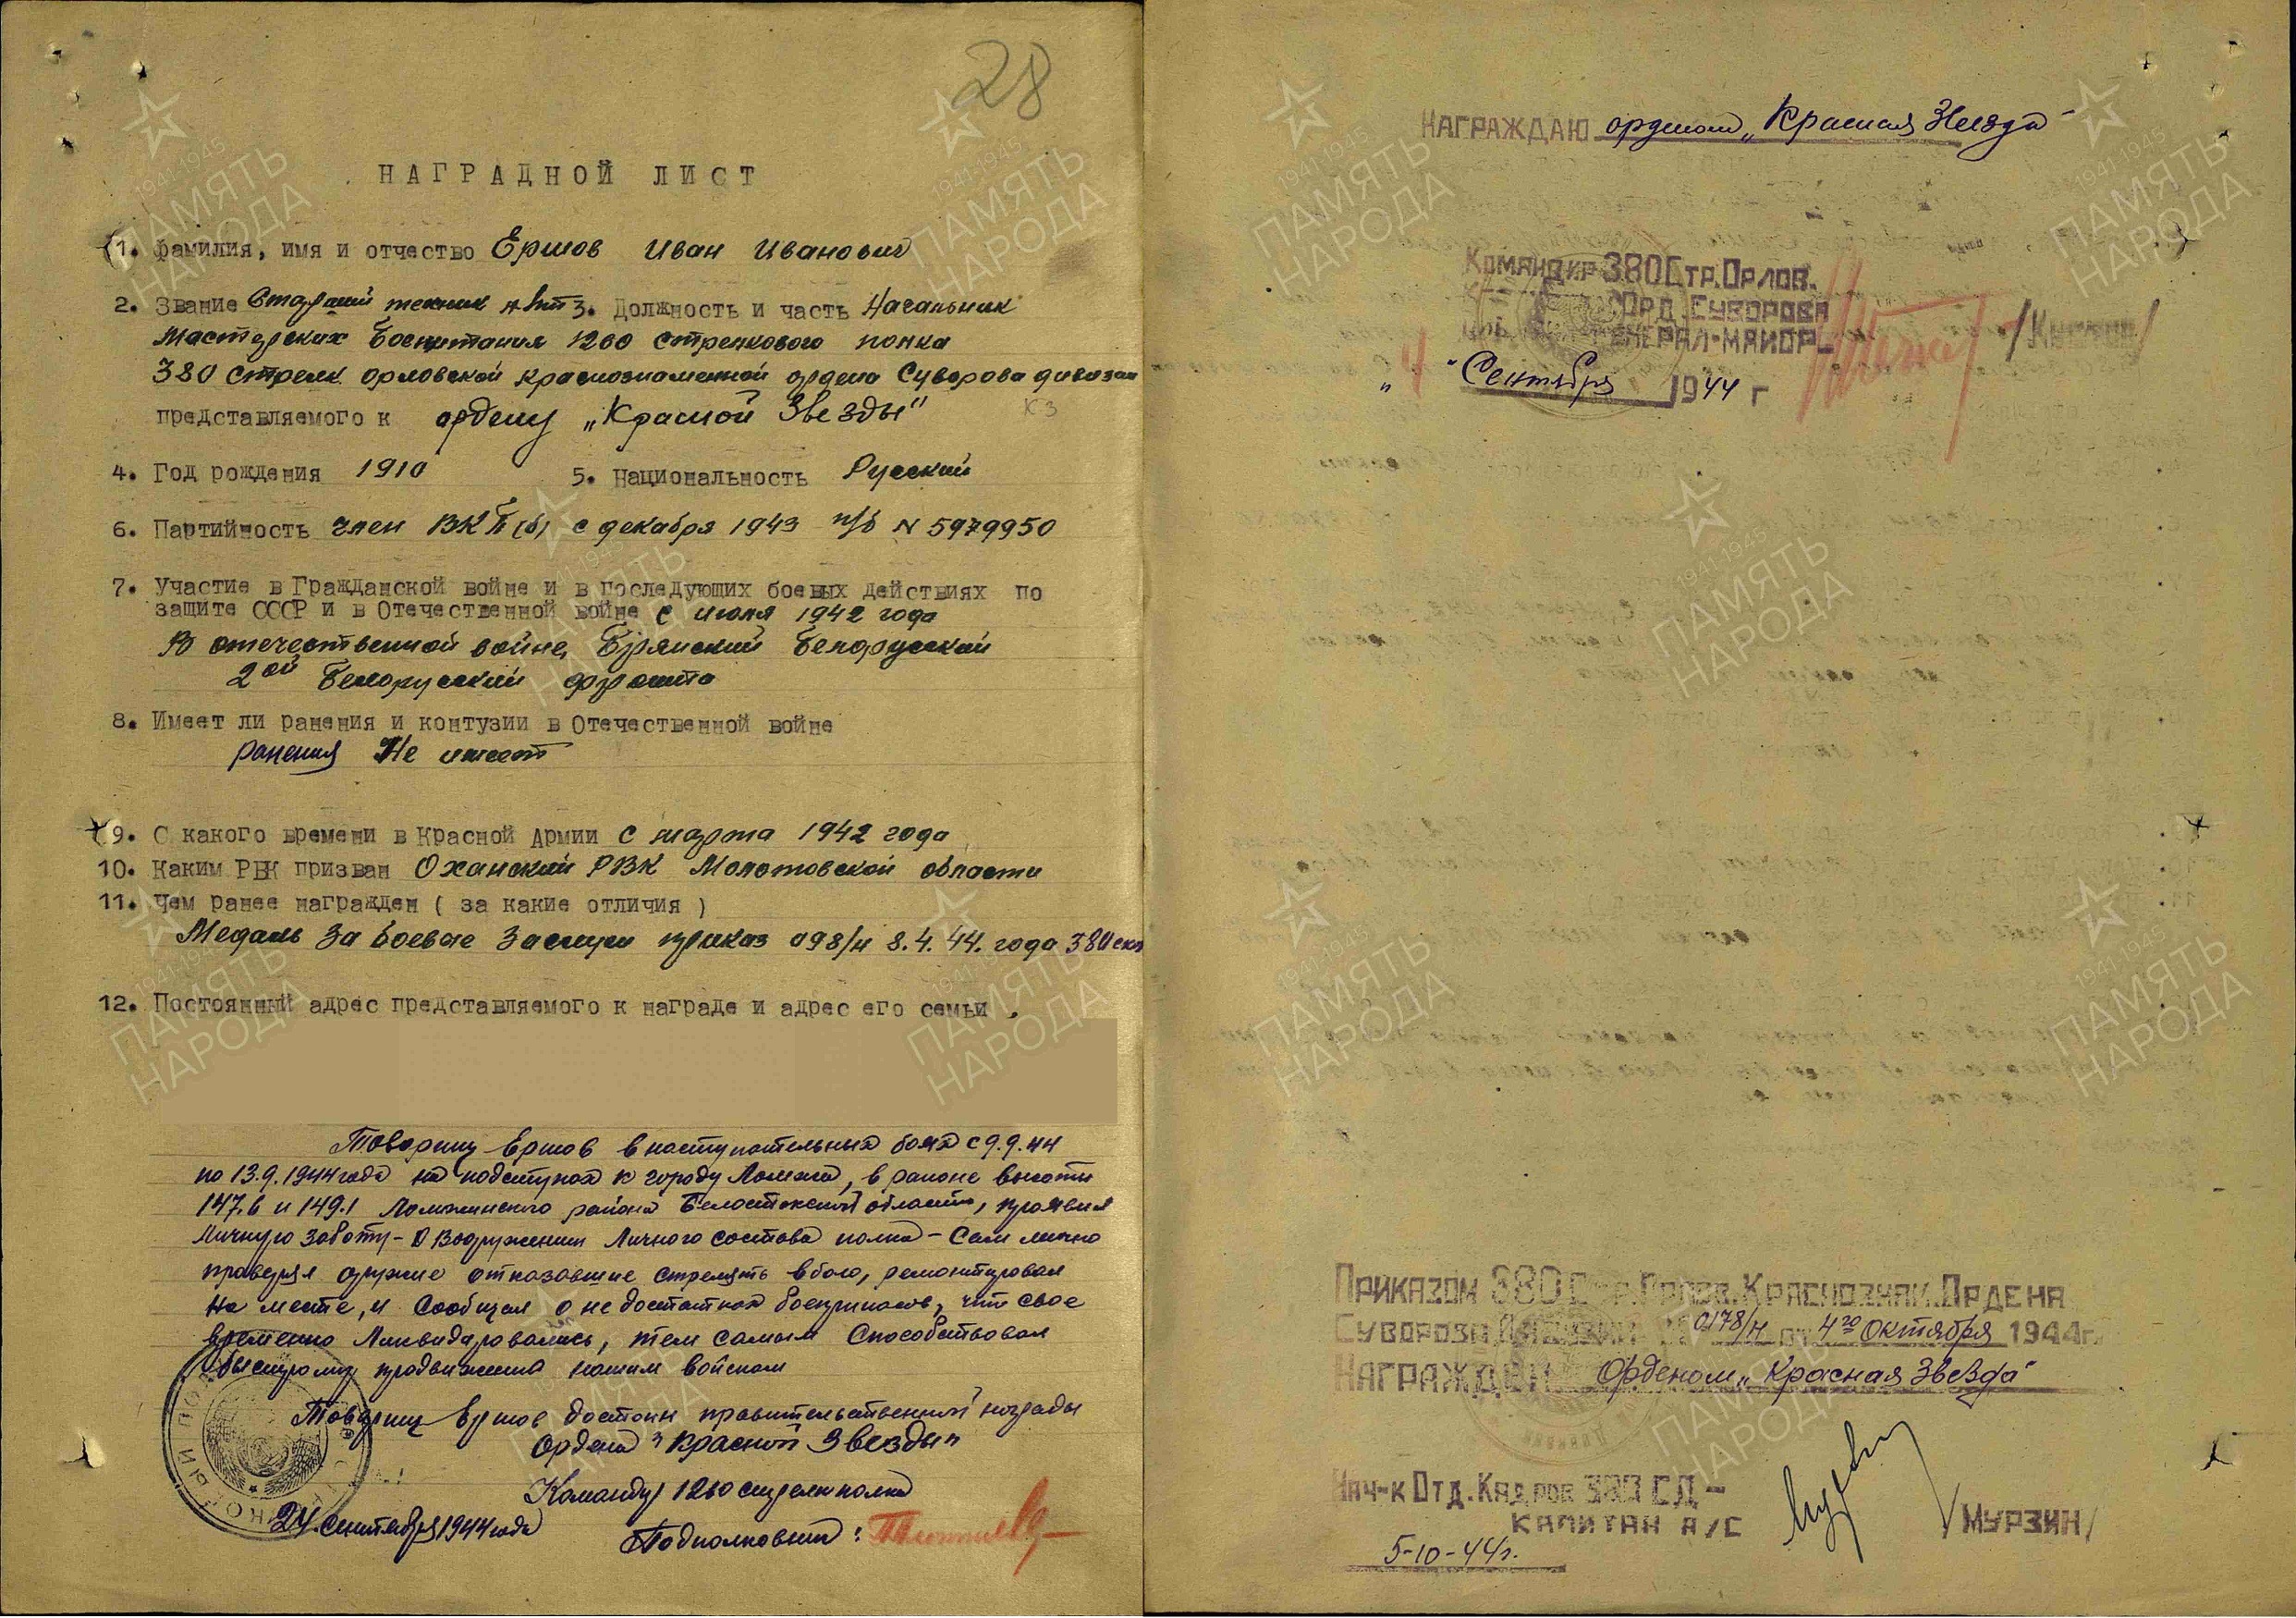 28
НАГРАДНОЙ ЛИСТ
1. Фамилия, имя и отчество Ершов Иван Иванович
2. Звание Старший техник 3. Должность и часть Начальник
мастерских Боепитания 1260 стрелкового полка
380 стрелк. орловской краснознаменной ордена Суворова
представляемого к ордену „Красной Звезды"
КЗ
4. Год рождения 1910 5. Национальность Русский
6. Партийность член ВКП(б) с декабря 1943 п/б N 5979950
7. Участие в Гражданской войне и в последующих боевых действиях по
защите СССР и в Отечественной войне с июля 1942 года
В отечественной войне, Брянский Белорусский
2ой Белорусский фронта
8. Имеет ли ранения и контузии в Отечественной войне
ранения Не имеет
9. С какого времени в Красной Армии с марта 1942 года
10. Каким РВК призван Оханский РВК Молотовской области
11. Чем ранее награжден ( за какие отличия )
Медаль За Боевые Заслуги приказ 098/н 8.4.44. года
12. Постоянный адрес представляемого к награде и адрес его семьи.
Товарищ Ершов в наступательных боях с 9.9.44
по 13.9.1944 года на подступах к городу Ломжа, в районе высоты
147.6 и 149.1 Ломжинского района Белостокской области, проявил
личную заботу - о Вооружении Личного состава полка - Сам лично
проверял оружие отказавшие стрелять в бою, ремонтировал
на месте, и Сообщал о недостатках боеприпасов, что свое
временно Ликвидировались, тем самым Способствовал
быстрому продвижению нашим войскам
Товарищ Ершов достоин правительственной награды
Ордена "Красной Звезды"
Командир 1260 стрелк полка
24. Сентября 1944 года
Подполковник:
НАГРАЖДАЮ орденом „Красная Звезда"
КОМАНДИР 380 СТР. ОРЛОВ.
ОРД. СУВОРОВА
ГЕНЕРАЛ-МАЙОР
„ " Сентября 1944 г
ПРИКАЗОМ 380 КРАСНОЗНАМ. ОРДЕНА
СУВОРОВА ДИВИЗИИ 0178/н от 4го октября 1944 г.
НАГРАЖДЕН Орденом „Красная Звезда"
НАЧ-К ОТД. КАДРОВ 380 СД -
КАПИТАН А/С /МУРЗИН/
5-10-44г.
ПАМЯТЬ НАРОДА
1941-1945